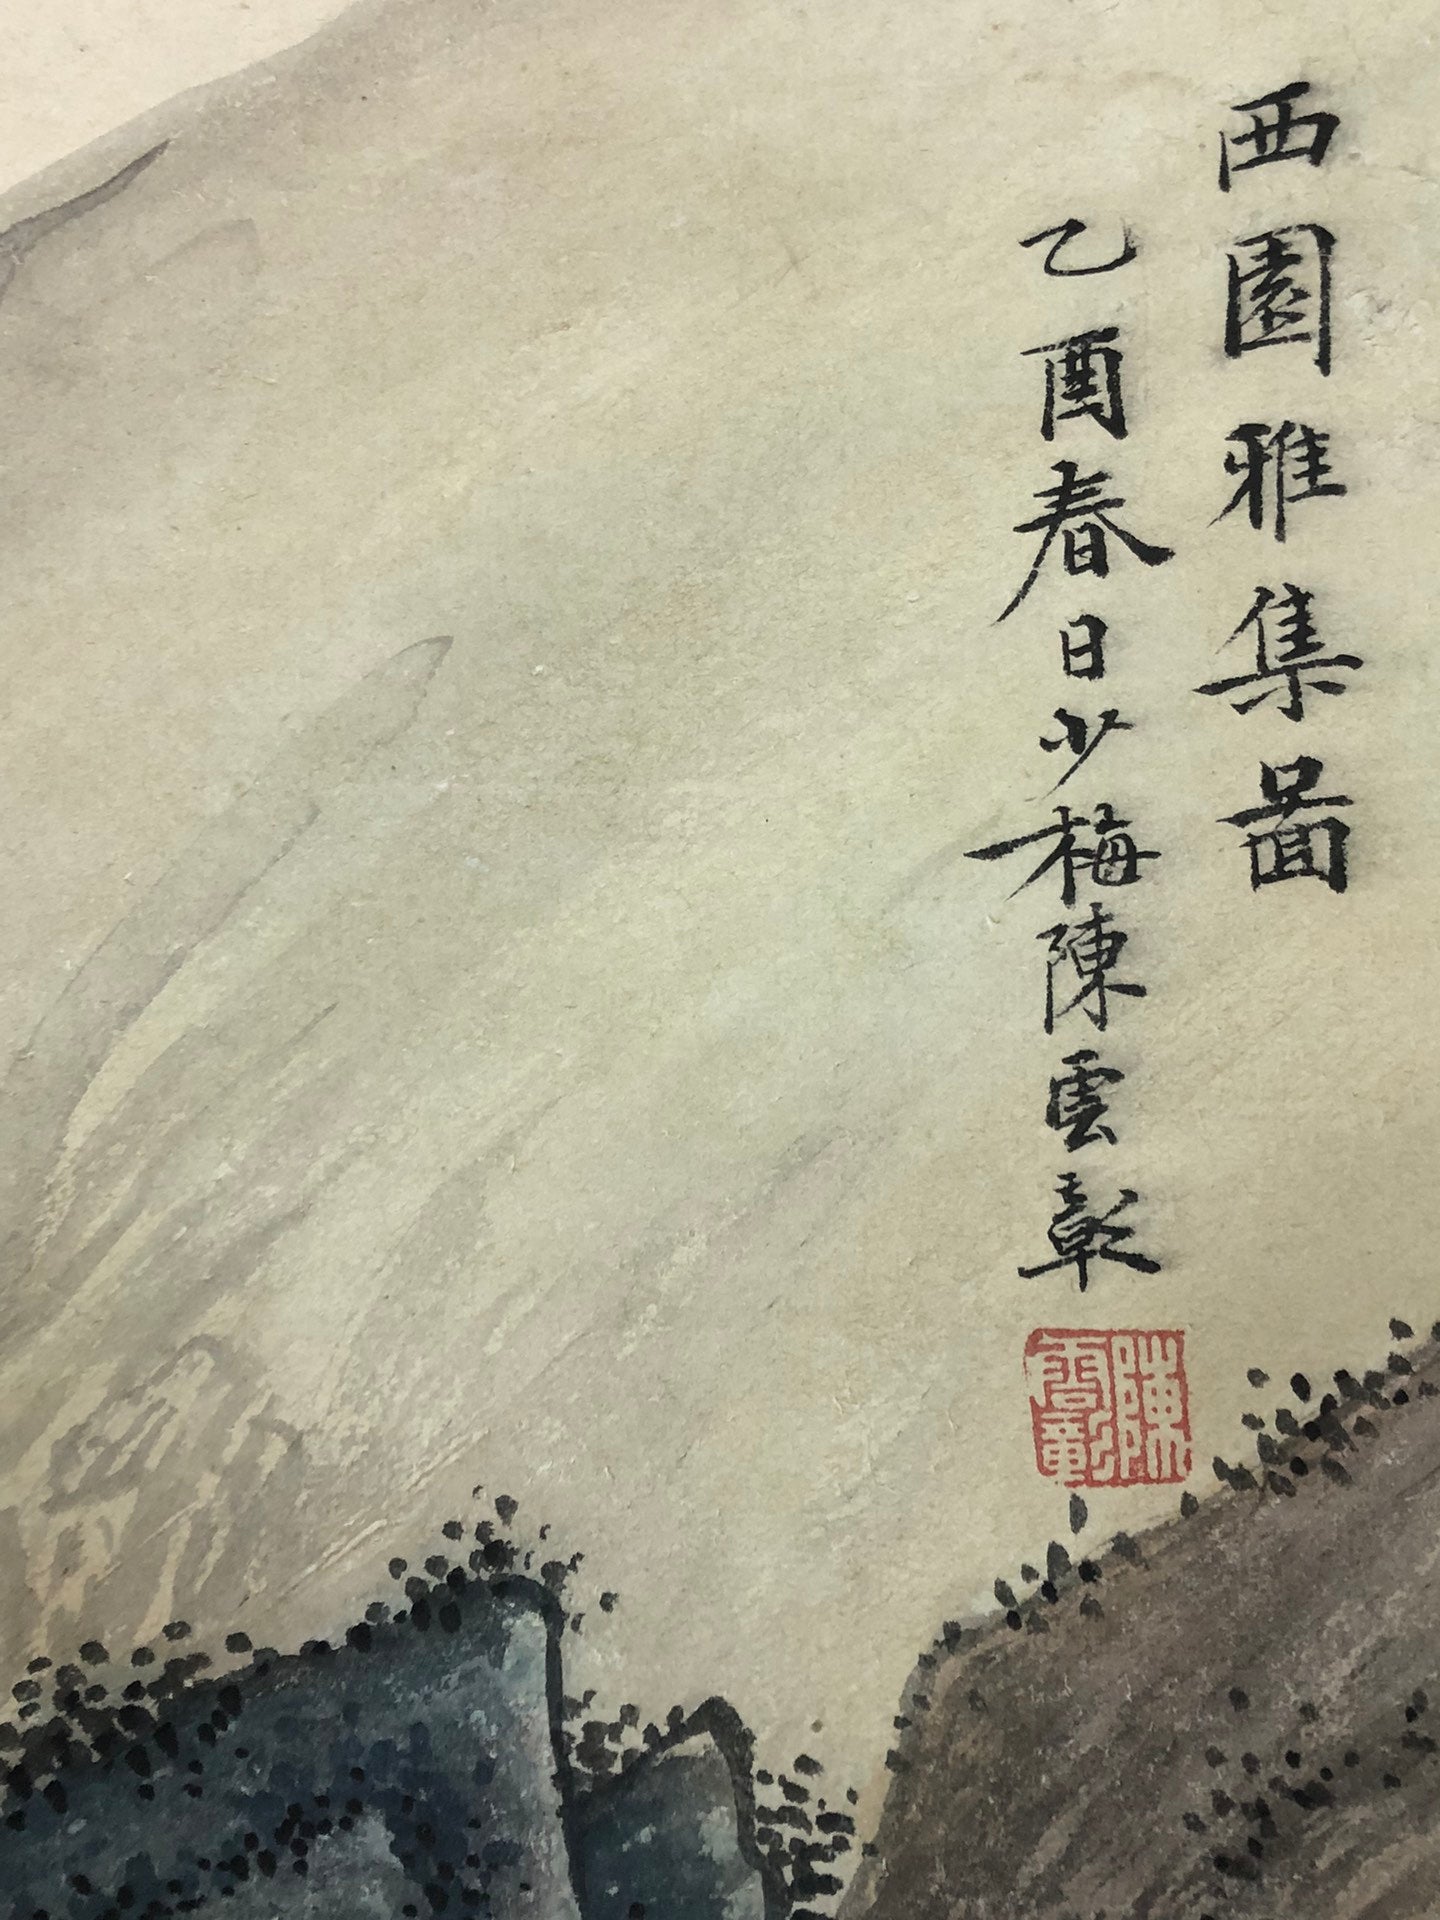 西園雅集啚
乙酉春日少梅陳雲彰
陳雲彰